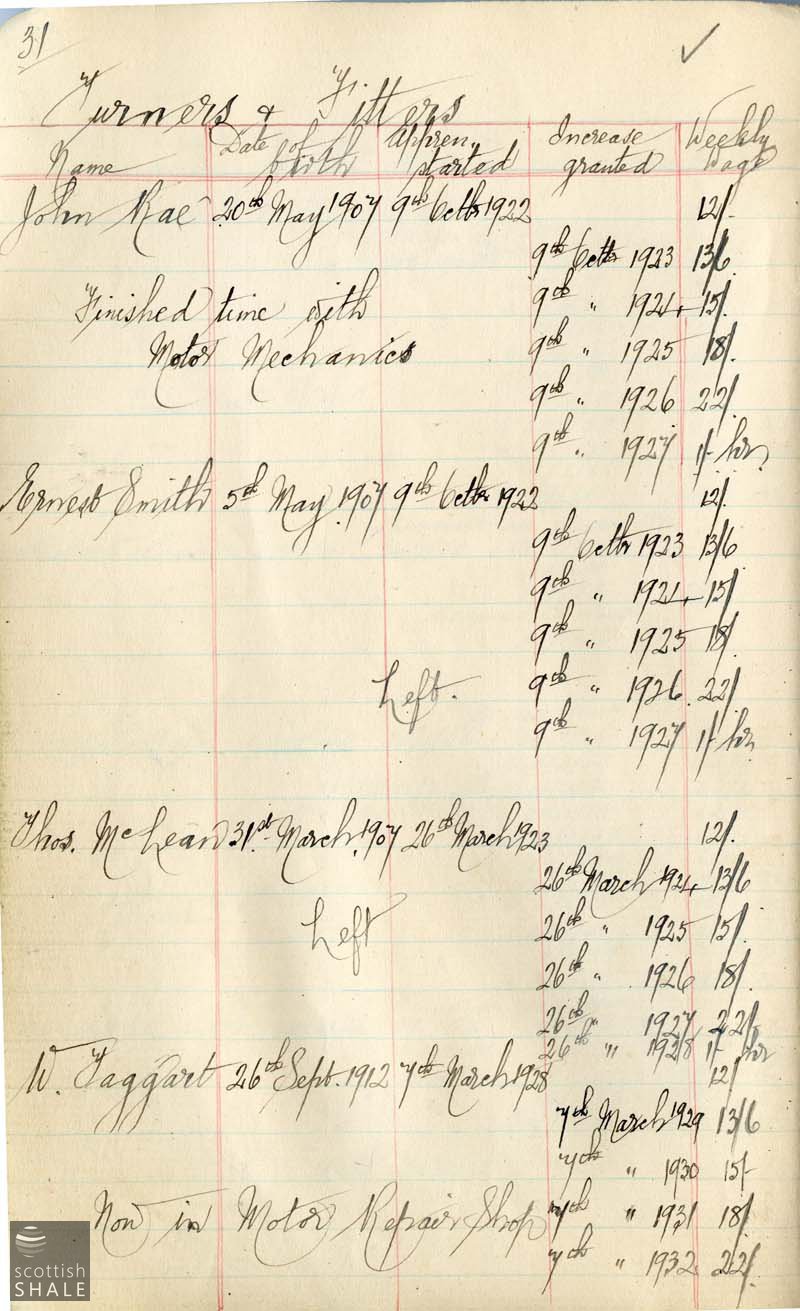 31 ✓
Turners & Fitters
Name Date of birth Appren. started Increase granted Weekly Wage
John Rae 20th May 1907 9th Octbr 1922 12/-
9th Octbr 1923 13/6
Finished time with 9th " 1924 15/-
Motor Mechanics 9th " 1925 18/-
9th " 1926 22/-
9th " 1927 1/- hr
Ernest Smith 5th May 1907 9th Octbr 1922 12/-
9th Octbr 1923 13/6
9th " 1924 15/-
9th " 1925 18/-
Left. 9th " 1926 22/-
9th " 1927 1/- hr
Thos. McLean 31st March 1907 26th March 1923 12/-
26th March 1924 13/6
Left 26th " 1925 15/-
26th " 1926 18/-
26th " 1927 22/-
26th " 1928 1/- hr
W. Taggart 26th Sept. 1912 7th March 1928 12/
7th March 1929 13/6
7th " 1930 15/-
Now in Motor Repair Shop 7th " 1931 18/-
7th " 1932 22/-
scottish
SHALE